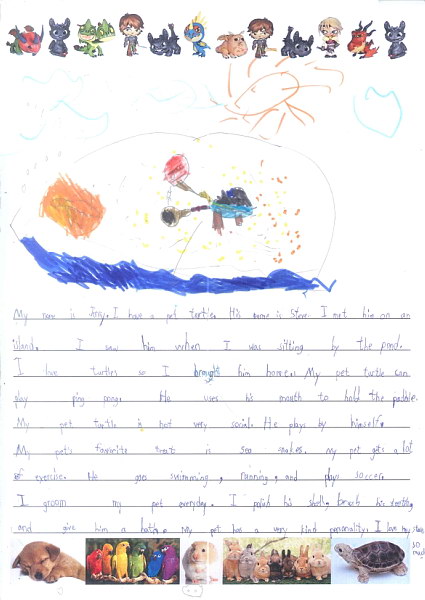 My name is Jerry. I have a pet turtle. His name is Steve. I met him on an
island. I saw him when I was sitting by the pond.
I love turtles so I brought him home. My pet turtle can
play ping pong. He uses his mouth to hold the paddle.
My pet turtle is not very social. He plays by himself.
My pet's favorite treat is sea snakes. my pet gets a lot
of exercise. He goes swimming, running, and plays soccer.
I groom my pet everyday. I polish his shell, brush his teeth,
and give him a bath. My pet has a very kind personality. I love my
so much